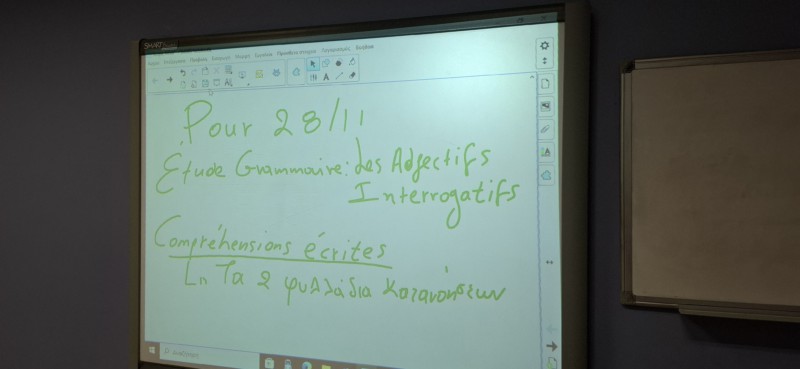 SMART
Pour 28/11
Étude Grammaire: Les Adjectifs
Interrogatifs
Compréhensions écrites
Τα 2 φυλλάδια κατανοήσεων